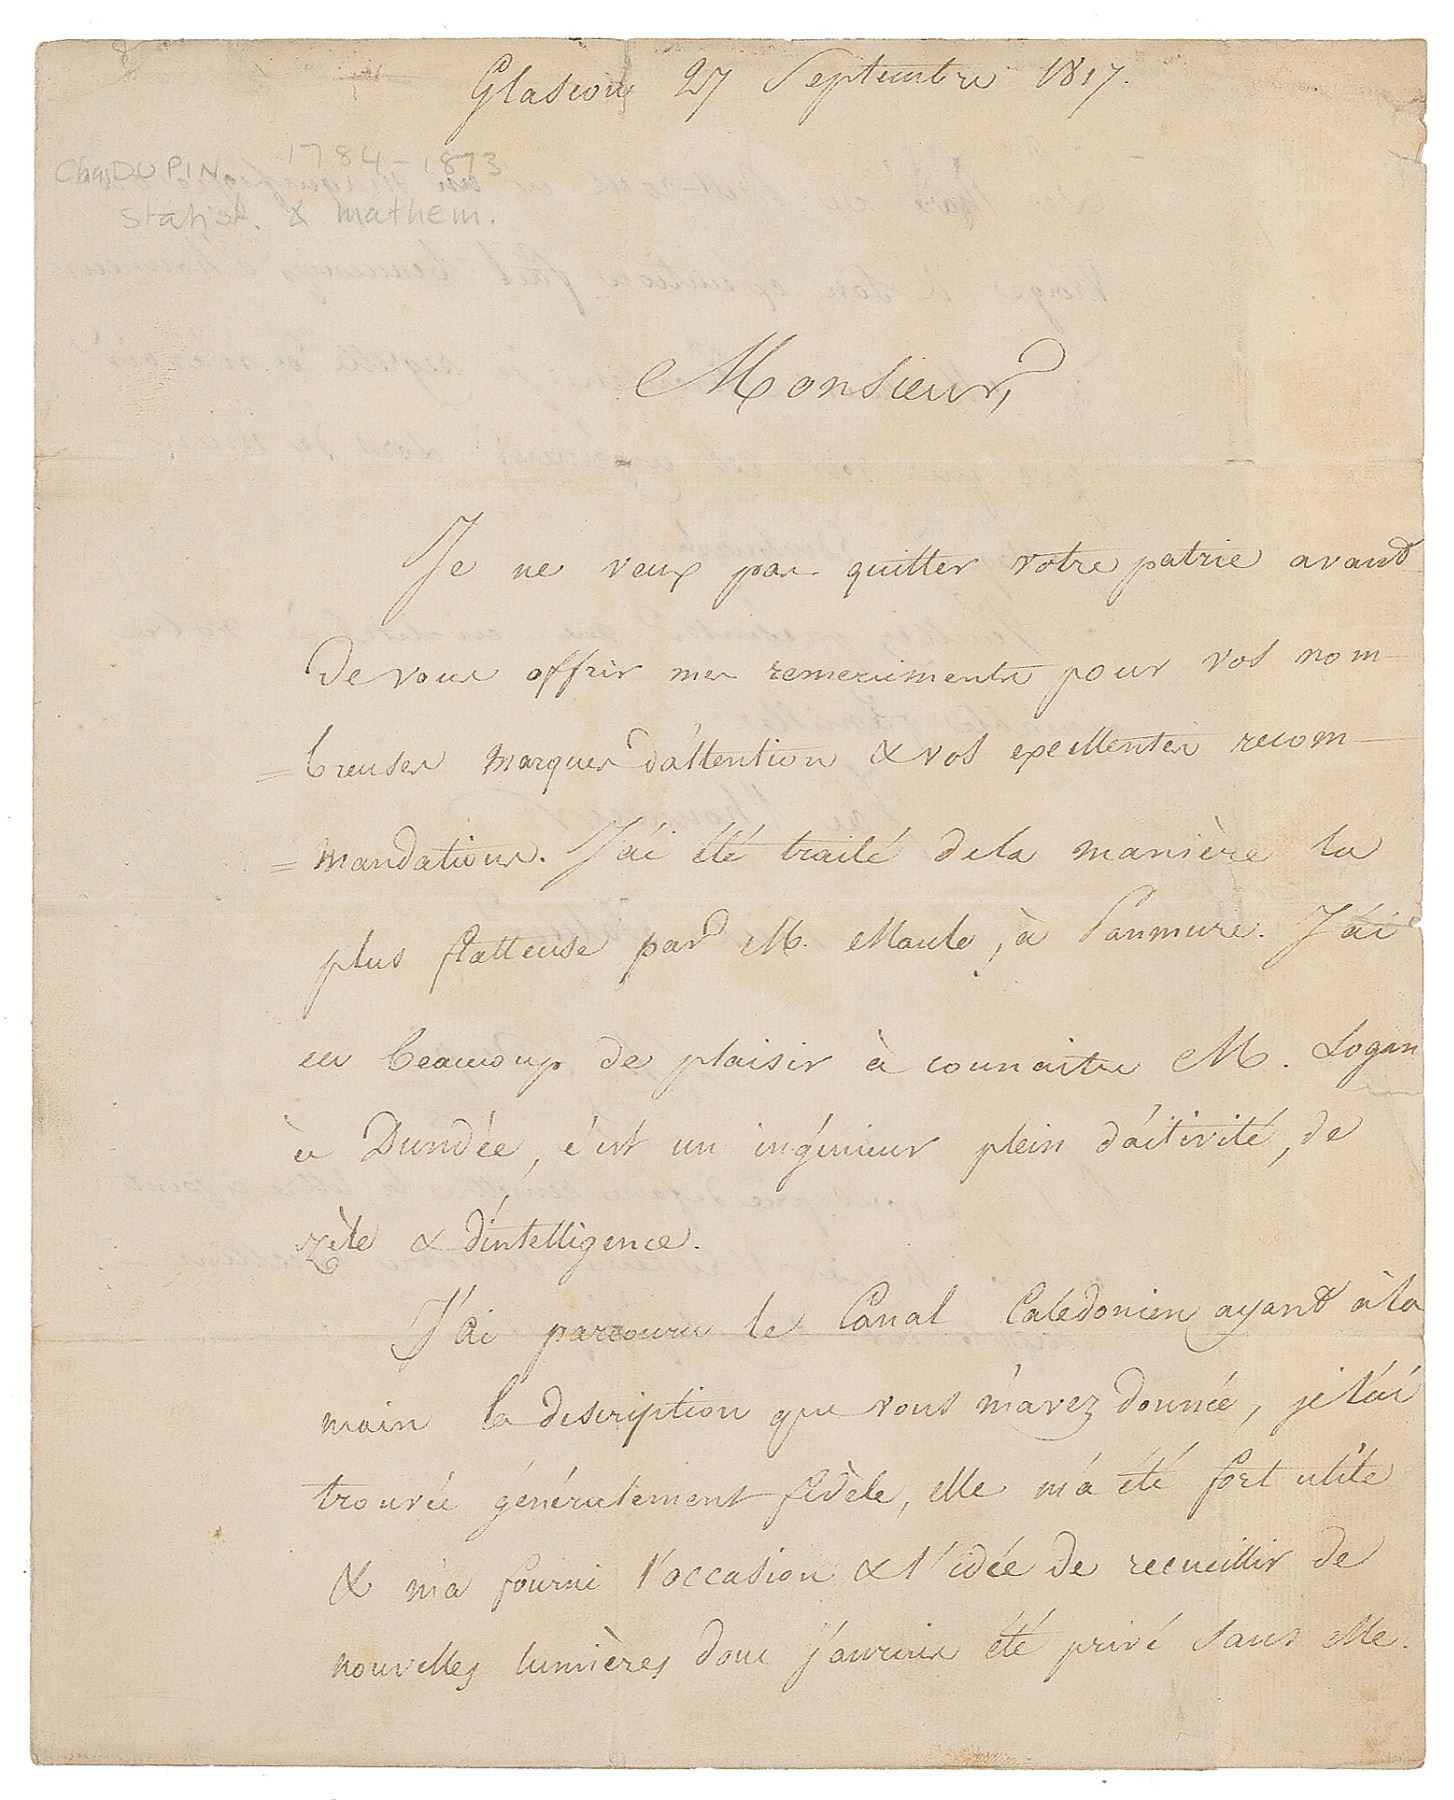 Glascow 27 Septembre 1817.
Chas DUPIN 1784-1873
Statist. & mathem.
Monsieur,
Je ne veux pas quitter votre patrie avant
de vous offrir mes remerciments pour vos nom-
=breuses marques d'attention & vos excellentes recom-
=mandations. J'ai été traité de la manière la
plus flatteuse par M. Maule, à Panmure. J'ai
eu beaucoup de plaisir à connaitre M. Logan
à Dundée, c'est un ingénieur plein d'activité, de
zèle & d'intelligence.
J'ai parcouru le Canal Calédonien ayant à la
main la description que vous m'avez donnée, je l'ai
trouvée généralement fidèle, elle m'a été fort utile
& m'a fourni l'occasion & l'idée de recueillir de
nouvelles lumières dont j'aurais été privé sans elle.